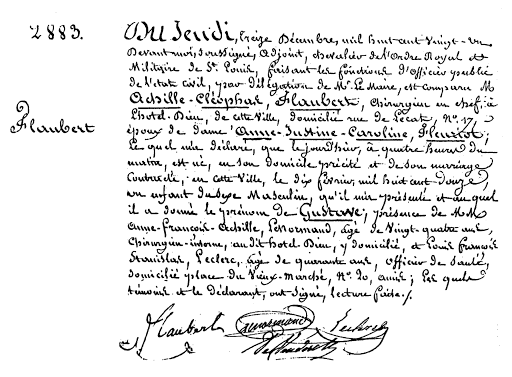 2883.
Du Jeudi, treize Décembre, mil huit cent vingt-un
Devant moi, soussigné, Adjoint, chevalier de l'Ordre Royal et
Militaire de St. Louis, faisant les fonctions d'Officier public
de l'état civil, par délégation de Mr. le Maire, est comparu M
Achille-Cléophas, Flaubert, Chirurgien en chef, à
l'hôtel-Dieu, de cette Ville, domicilié rue de Lecat, No. 17,
Flaubert
époux de dame Anne-Justine-Caroline, Fleuriot;
Lequel m'a déclaré, que le jour d'hier, à quatre heures du
matin, est né, en son domicile précité et de son mariage
Contracté, en cette Ville, le dix février, mil huit cent douze,
un enfant du sexe Masculin, qu'il m'a présenté et auquel
il a donné le prénom de Gustave; présence de MM
Anne-François-Achille, Lenormand, âgé de Vingt-quatre ans,
Chirurgien-interne, audit hôtel Dieu, y domicilié, et Louis François
Stanislas, Leclerc, âgé de quarante ans, officier de santé,
domicilié place du Vieux-Marché, No. 20, amis; Lesquels
témoins et le déclarant, ont signé, lecture faite./.
Flaubert Lenormand Leclerc